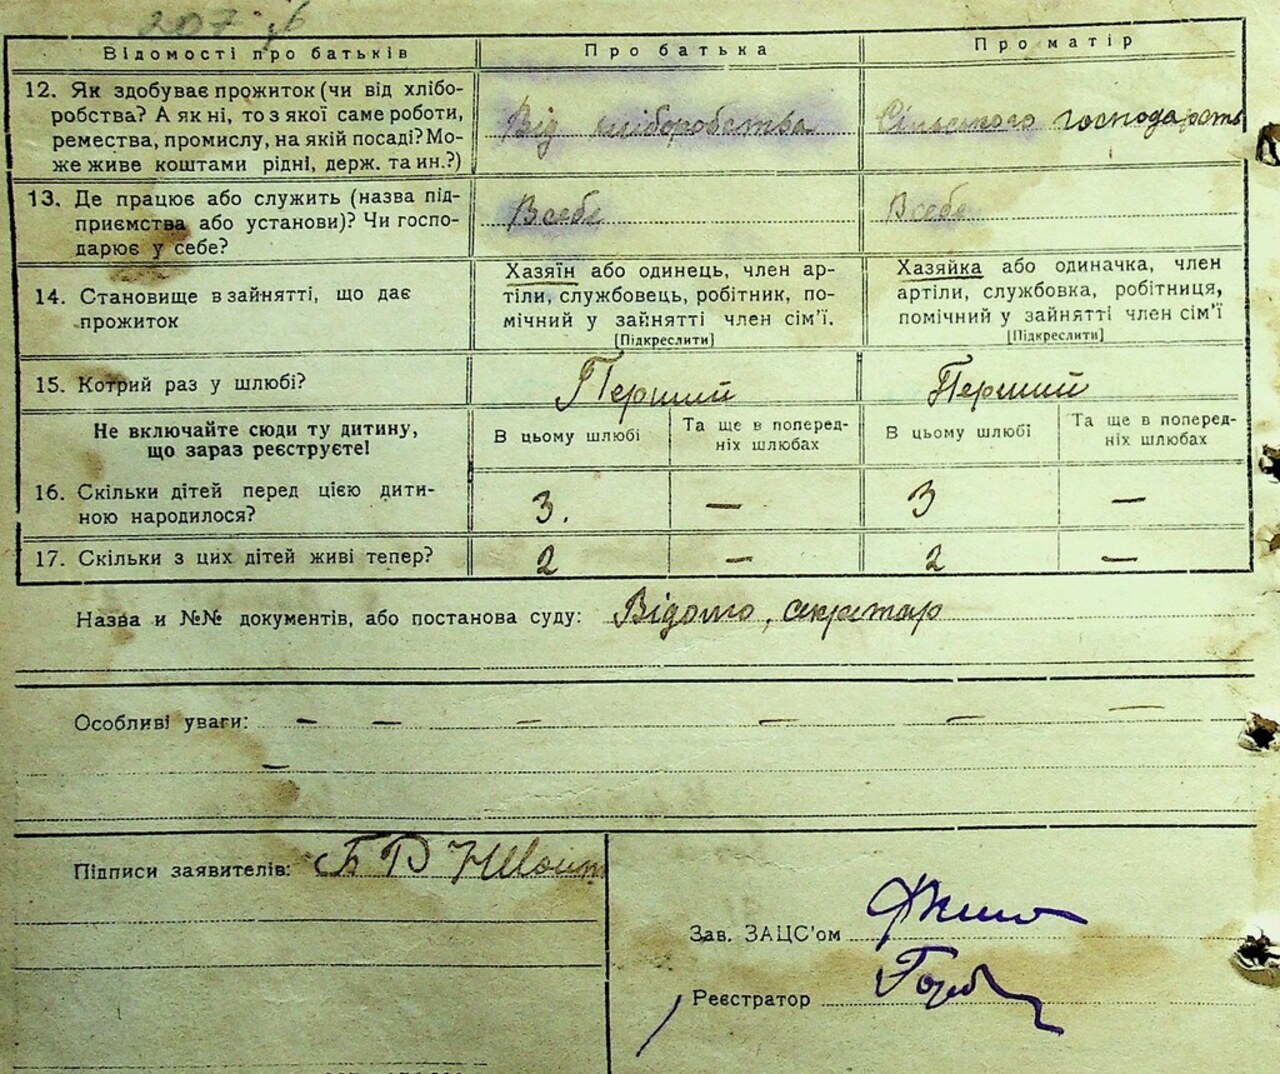 207
Відомості про батьків Про батька Про матір
12. Як здобуває прожиток (чи від хлібо-
робства? А як ні, то з якої саме роботи,
ремества, промислу, на якій посаді? Мо-
же живе коштами рідні, держ. та ин.?)
Від хліборобства
Сільського господарств
13. Де працює або служить (назва під-
приємства або установи)? Чи госпо-
дарює у себе?
В себе
В себе
14. Становище в зайнятті, що дає
прожиток
Хазяїн або одинець, член ар-
тілі, службовець, робітник, по-
мічний у зайнятті член сім'ї.
[Підкреслити]
Хазяйка або одиначка, член
артілі, службовка, робітниця,
помічний у зайнятті член сім'ї
[Підкреслити]
15. Котрий раз у шлюбі? Перший Перший
Не включайте сюди ту дитину,
що зараз реєструєте!
В цьому шлюбі
Та ще в поперед-
ніх шлюбах
В цьому шлюбі
Та ще в поперед-
ніх шлюбах
16. Скільки дітей перед цією дити-
ною народилося?
3. — 3 —
17. Скільки з цих дітей живі тепер? 2 — 2 —
Назва и №№ документів, або постанова суду: Відомо, секретар
Особливі уваги: — — — — — —
—
Підписи заявителів:
Зав. ЗАЦС'ом
Реєстратор